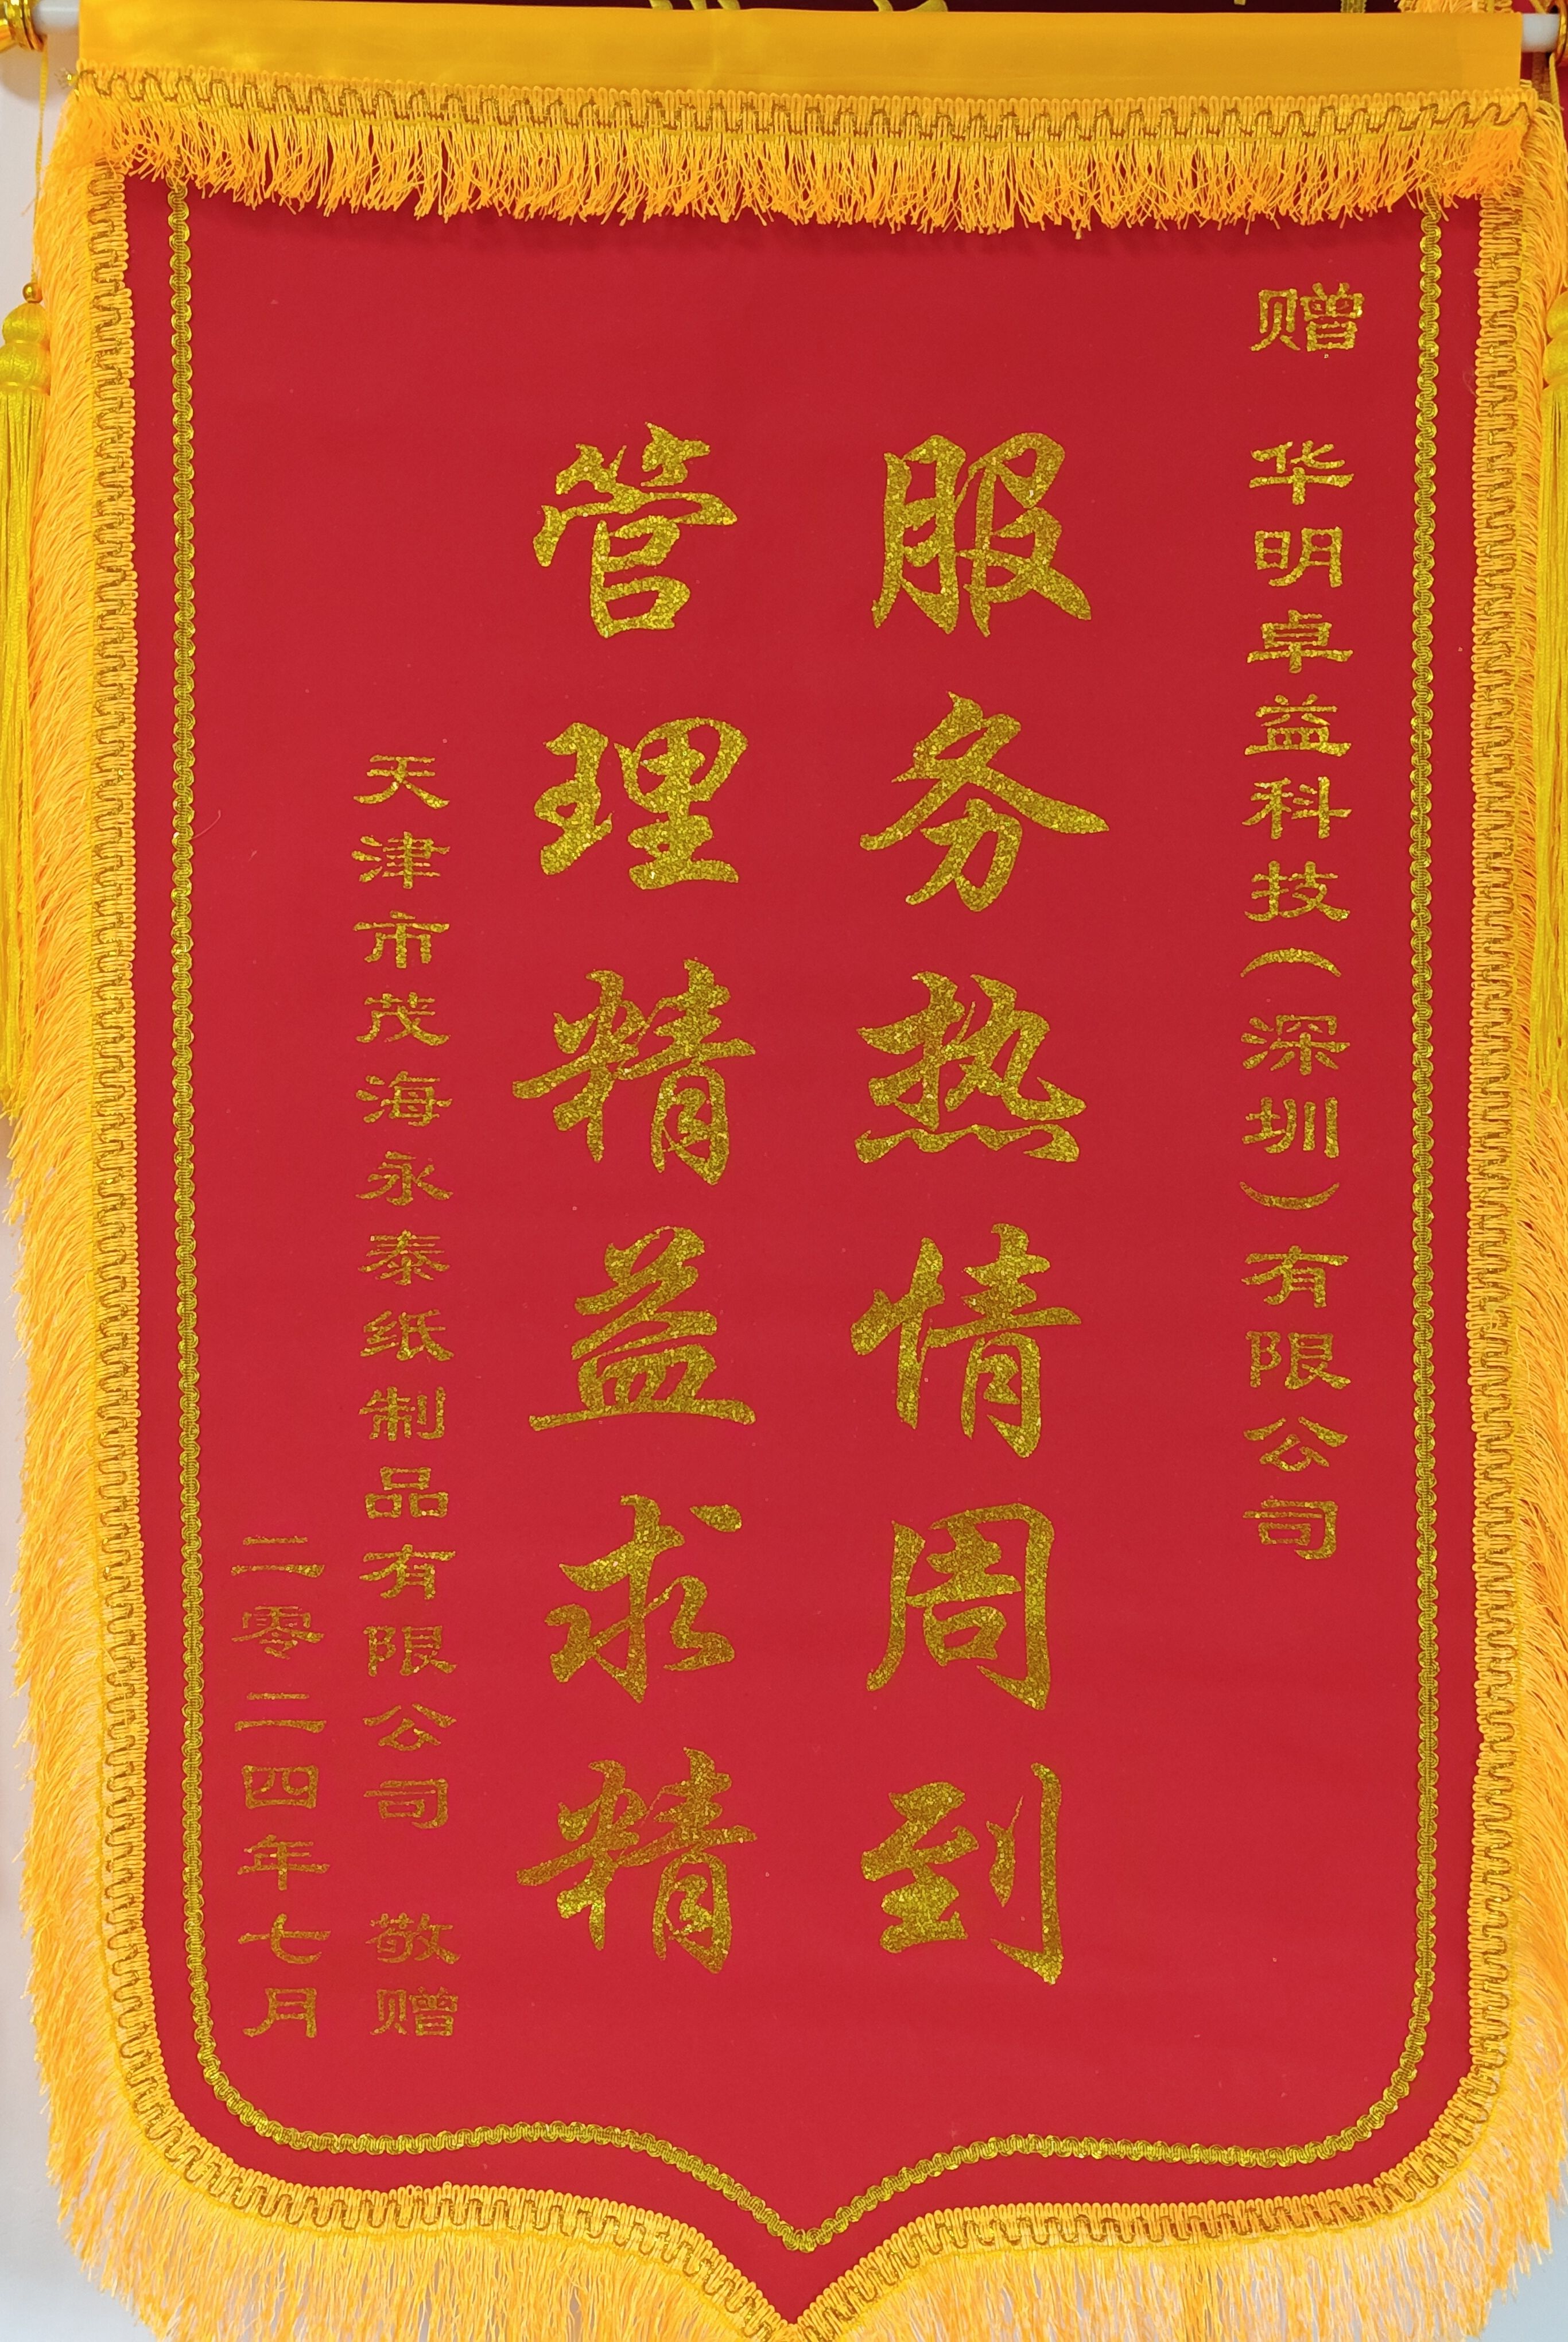 赠 华明卓益科技(深圳)有限公司
服务热情周到
管理精益求精
天津市茂海永泰纸制品有限公司 敬赠
二零二四年七月